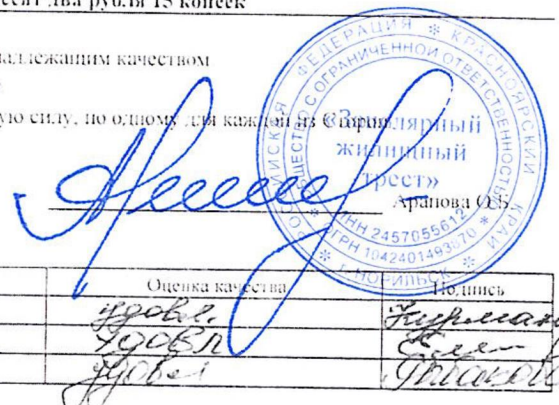 десят два рубля 15 копеек
надлежащим качеством
ую силу, по одному для каждой из Сторон
РОССИЙСКАЯ ФЕДЕРАЦИЯ * КРАСНОЯРСКИЙ КРАЙ * г. НОРИЛЬСК *
ОБЩЕСТВО С ОГРАНИЧЕННОЙ ОТВЕТСТВЕННОСТЬЮ
«Заполярный
жилищный
трест»
ИНН 2457055612
ОГРН 1042401493870
Арапова О.Б.
Оценка качества Подпись
Удовл.
Удовл
Удовл